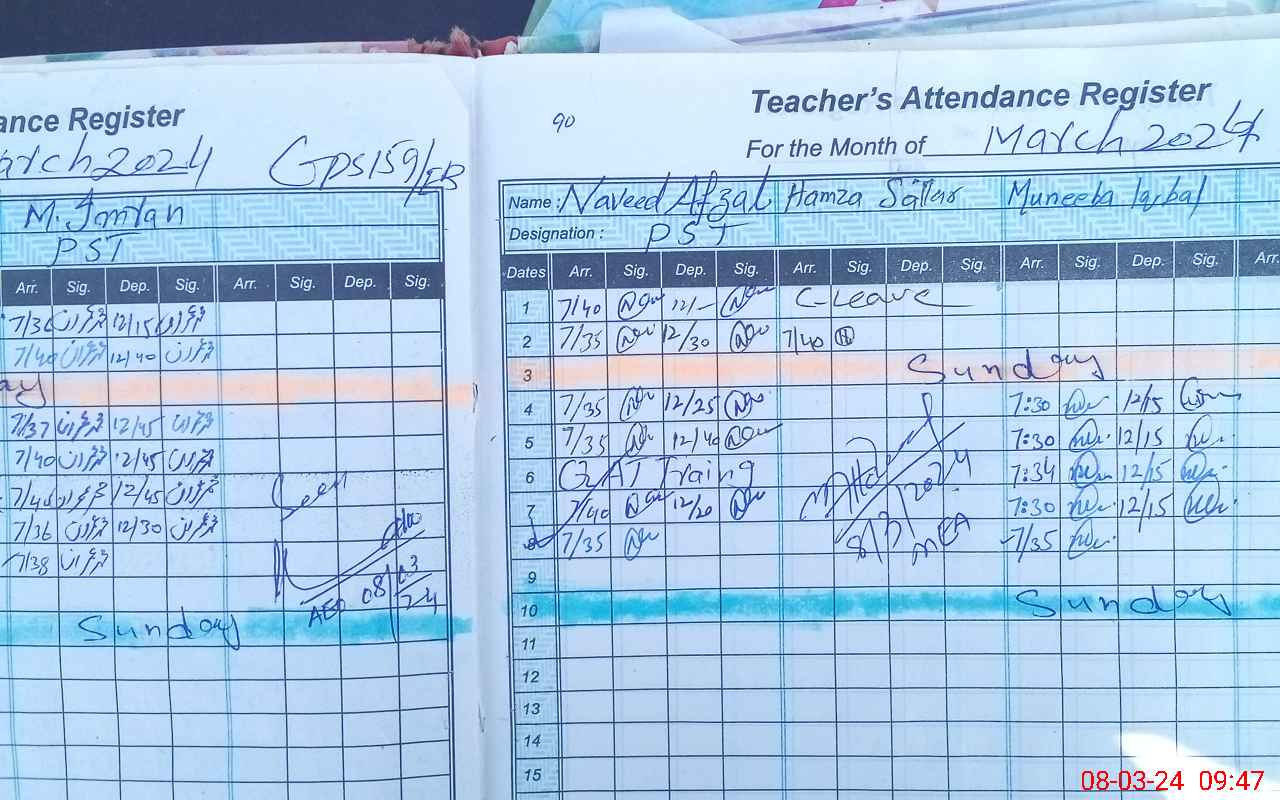 ance Register
arch 2024 GPS 159/EB
M. Imran
PST
Arr. Sig. Dep. Sig. Arr. Sig. Dep. Sig.
7/36 12/15
7/40 12/40
ay
7/37 12/45
7/40 12/45
7/40 12/45
Seen
7/36 12/30
7/38
AEO 08/03/24
Sunday
90
Teacher's Attendance Register
For the Month of March 2024
Name : Naveed Afzal Hamza Sattar Muneeba Iqbal
Designation : PST
Dates Arr. Sig. Dep. Sig. Arr. Sig. Dep. Sig. Arr. Sig. Dep. Sig. Arr.
1 7/40 12/- C-Leave
2 7/35 12/30 7/40
3 Sunday
4 7/35 12/25 7:30 12/15
5 7/35 12/40 7:30 12/15
6 Traing 7:34 12/15
7 7/40 12/20 7:30 12/15
8 7/35 7/35
8/3/2024
MEA
9
10 Sunday
11
12
13
14
15
08-03-24 09:47